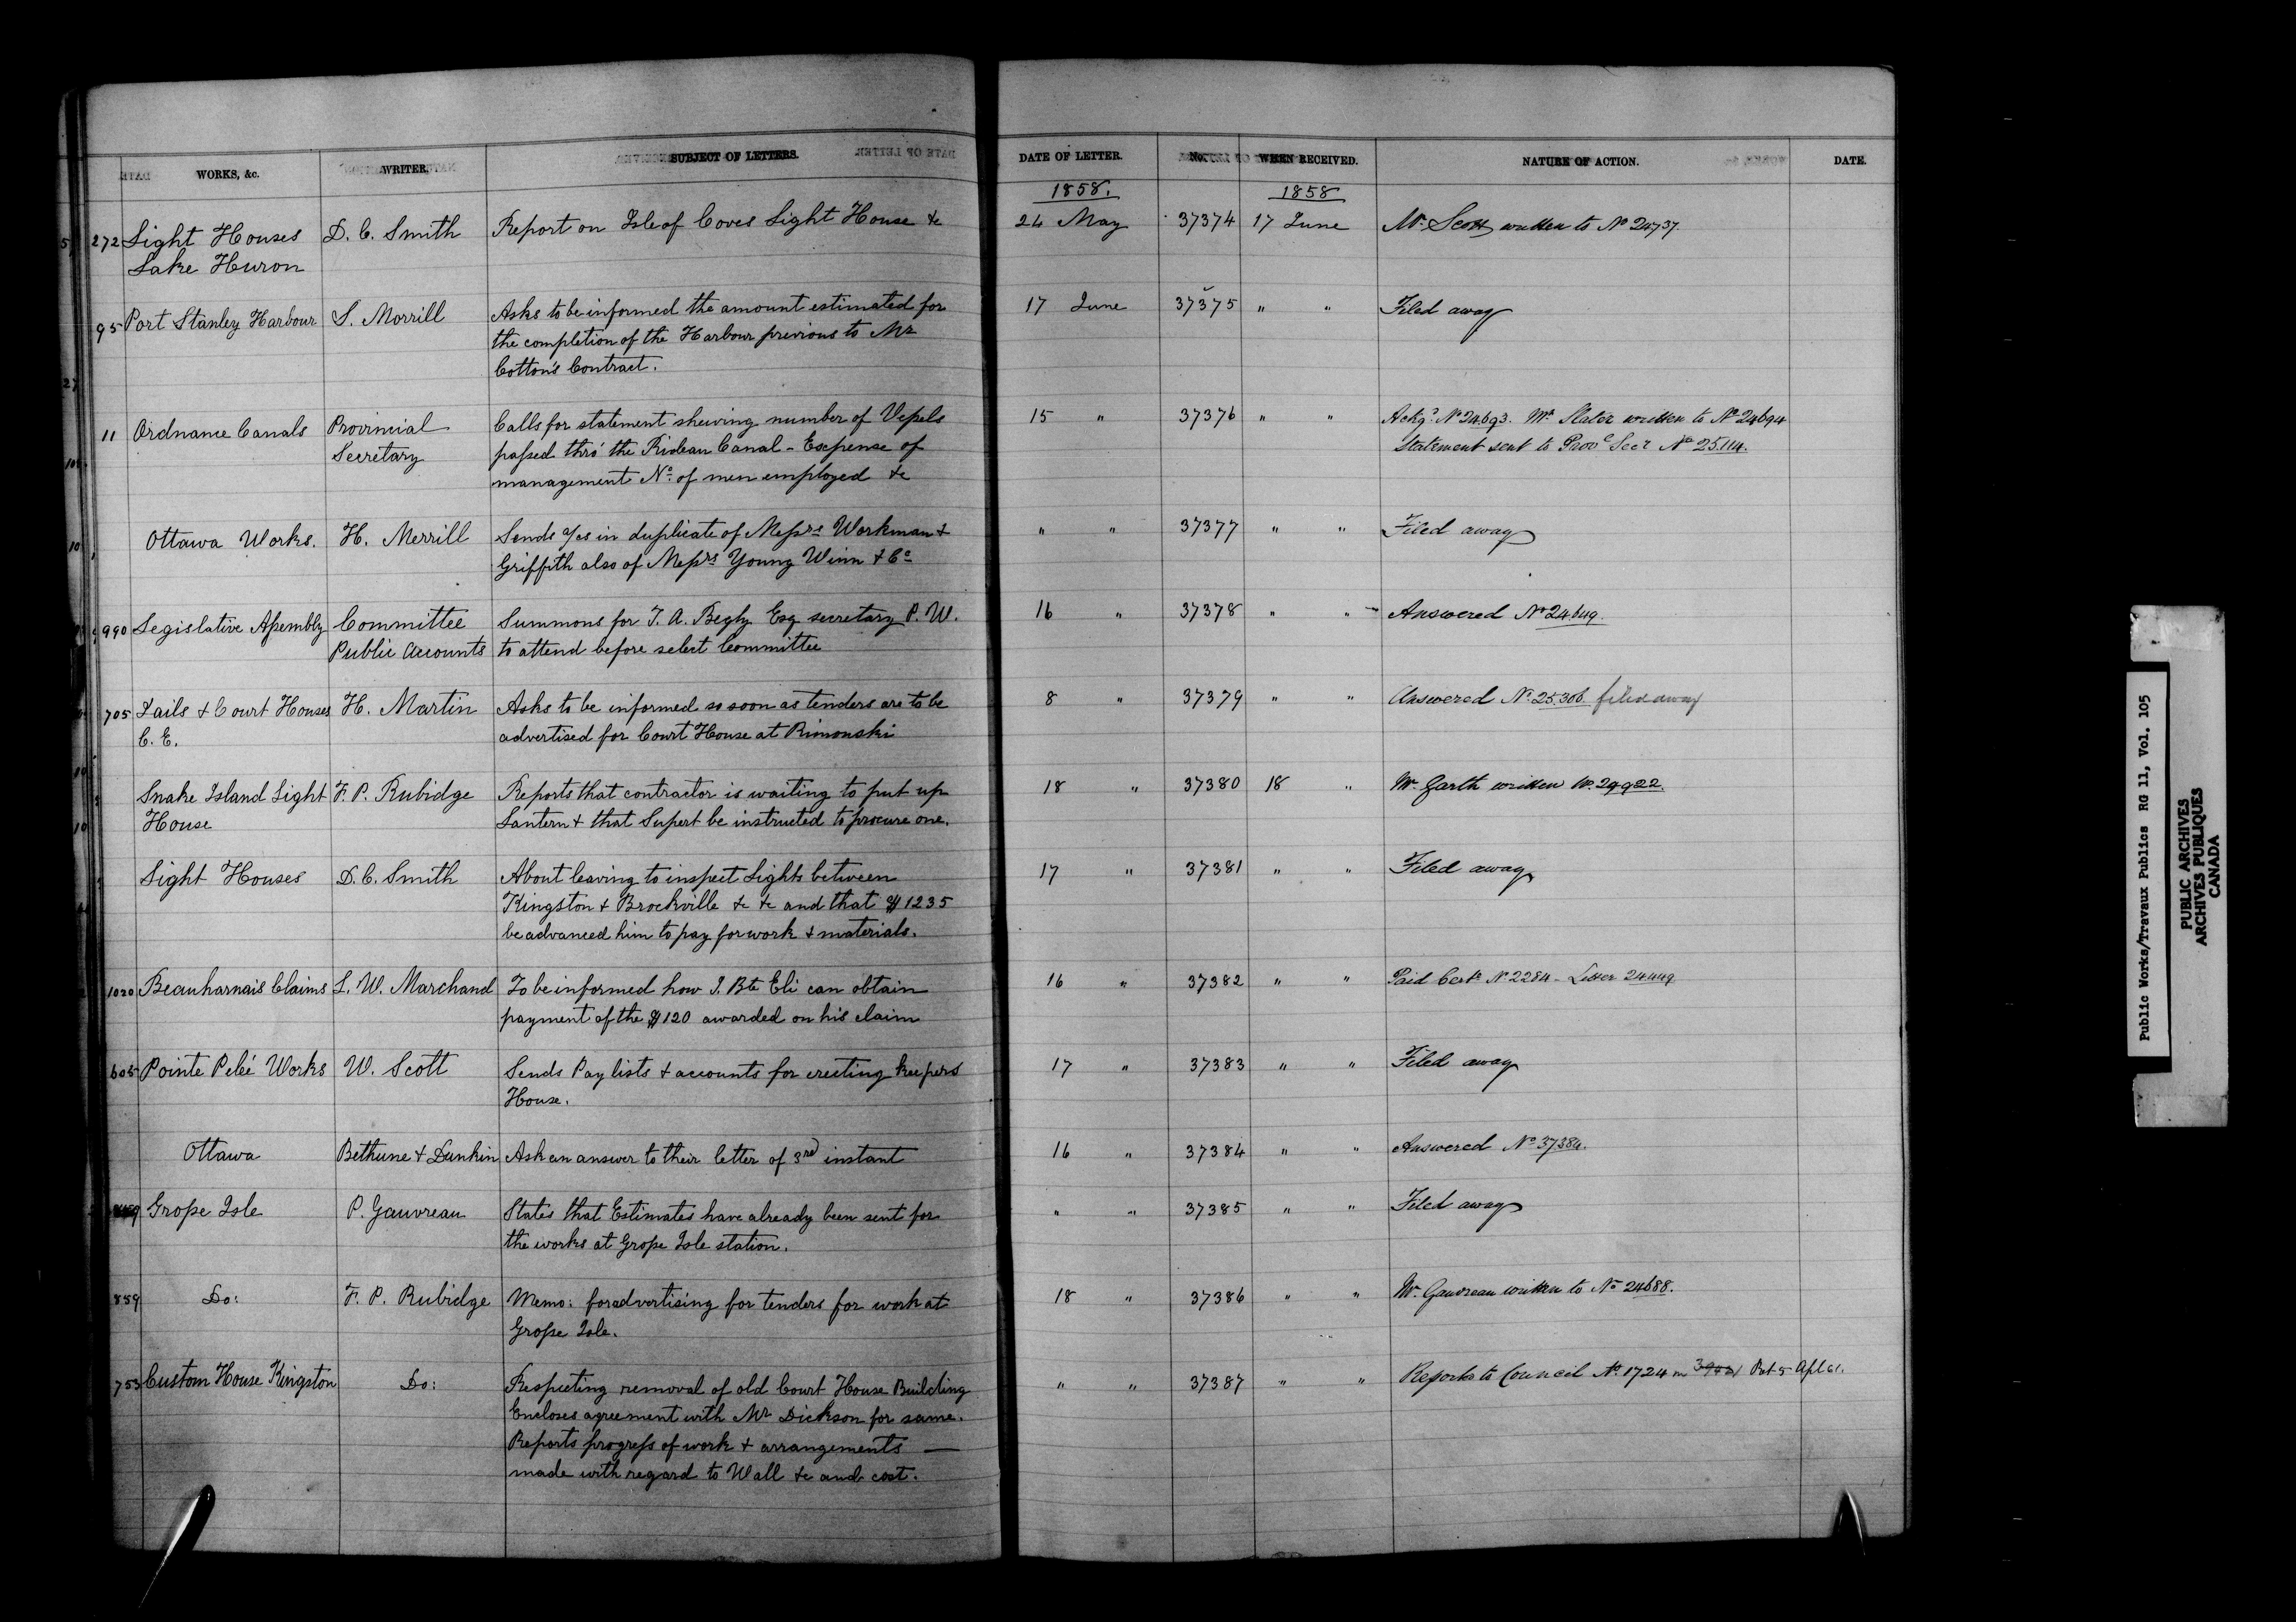 WORKS, &c. WRITER, SUBJECT OF LETTERS. DATE OF LETTER. No. WHEN RECEIVED. NATURE OF ACTION. DATE.
1858. 1858
272 Light Houses D. C. Smith Report on Isle of Coves Light House &c 24 May 37374 17 June Mr. Scott written to No 24737.
Lake Huron
95 Port Stanley Harbour L. Morrill Asks to be informed the amount estimated for 17 June 37375 " " Filed away
the completion of the Harbour previous to Mr
Cotton's Contract.
11 Ordnance Canals Provincial Calls for statement shewing number of Vessels 15 " 37376 " " Ackgd No 24693. Mr Slater written to No 24694
Secretary passed thro' the Rideau Canal - Expense of Statement sent to Provl Secr No 25114.
management No. of men employed &c
Ottawa Works. H. Merrill Sends a/cs in duplicate of Messrs Workman & " " 37377 " " Filed away
Griffith also of Messrs Young Winn & Co
990 Legislative Assembly Committee Summons for T. A. Begly Esq secretary P. W. 16 " 37378 " " Answered No 24649.
Public Accounts to attend before select Committee
705 Jails & Court Houses H. Martin Asks to be informed so soon as tenders are to be 8 " 37379 " " Answered No 25.306. filed away
C. E. advertised for Court House at Rimouski
Snake Island Light F. P. Rubidge Reports that contractor is waiting to put up 18 " 37380 18 " Mr. Garth written No.
House Lantern & that Supert be instructed to procure one.
Light Houses D. C. Smith About leaving to inspect Lights between 17 " 37381 " " Filed away
Kingston & Brockville &c &c and that $1235
be advanced him to pay for work & materials.
1020 Beauharnais Claims L. W. Marchand To be informed how J. Bte Eli can obtain 16 " 37382 " " Paid Certe No 2284 - Letter 24449
payment of the $120 awarded on his claim
605 Pointe Pelée Works W. Scott Sends Pay lists & accounts for erecting keepers 17 " 37383 " " Filed away
House.
Ottawa Bethune & Dunkin Ask an answer to their letter of 3rd instant 16 " 37384 " " Answered No 37384.
Grosse Isle P. Gauvreau States that Estimates have already been sent for " " 37385 " " Filed away
the works at Grosse Isle station.
859 Do: F. P. Rubidge Memo: for advertising for tenders for work at 18 " 37386 " " Mr. Gauvreau written to No 24688.
Grosse Isle.
753 Custom House Kingston Do: Respecting removal of old Court House Building " " 37387 " " Reports to Council No. 1724 5 Apl 61.
Encloses agreement with Mr Dickson for same.
Reports progress of work & arrangements —
made with regard to Wall &c and cost.
Public Works/Travaux Publics RG 11, Vol. 105
PUBLIC ARCHIVES
ARCHIVES PUBLIQUES
CANADA